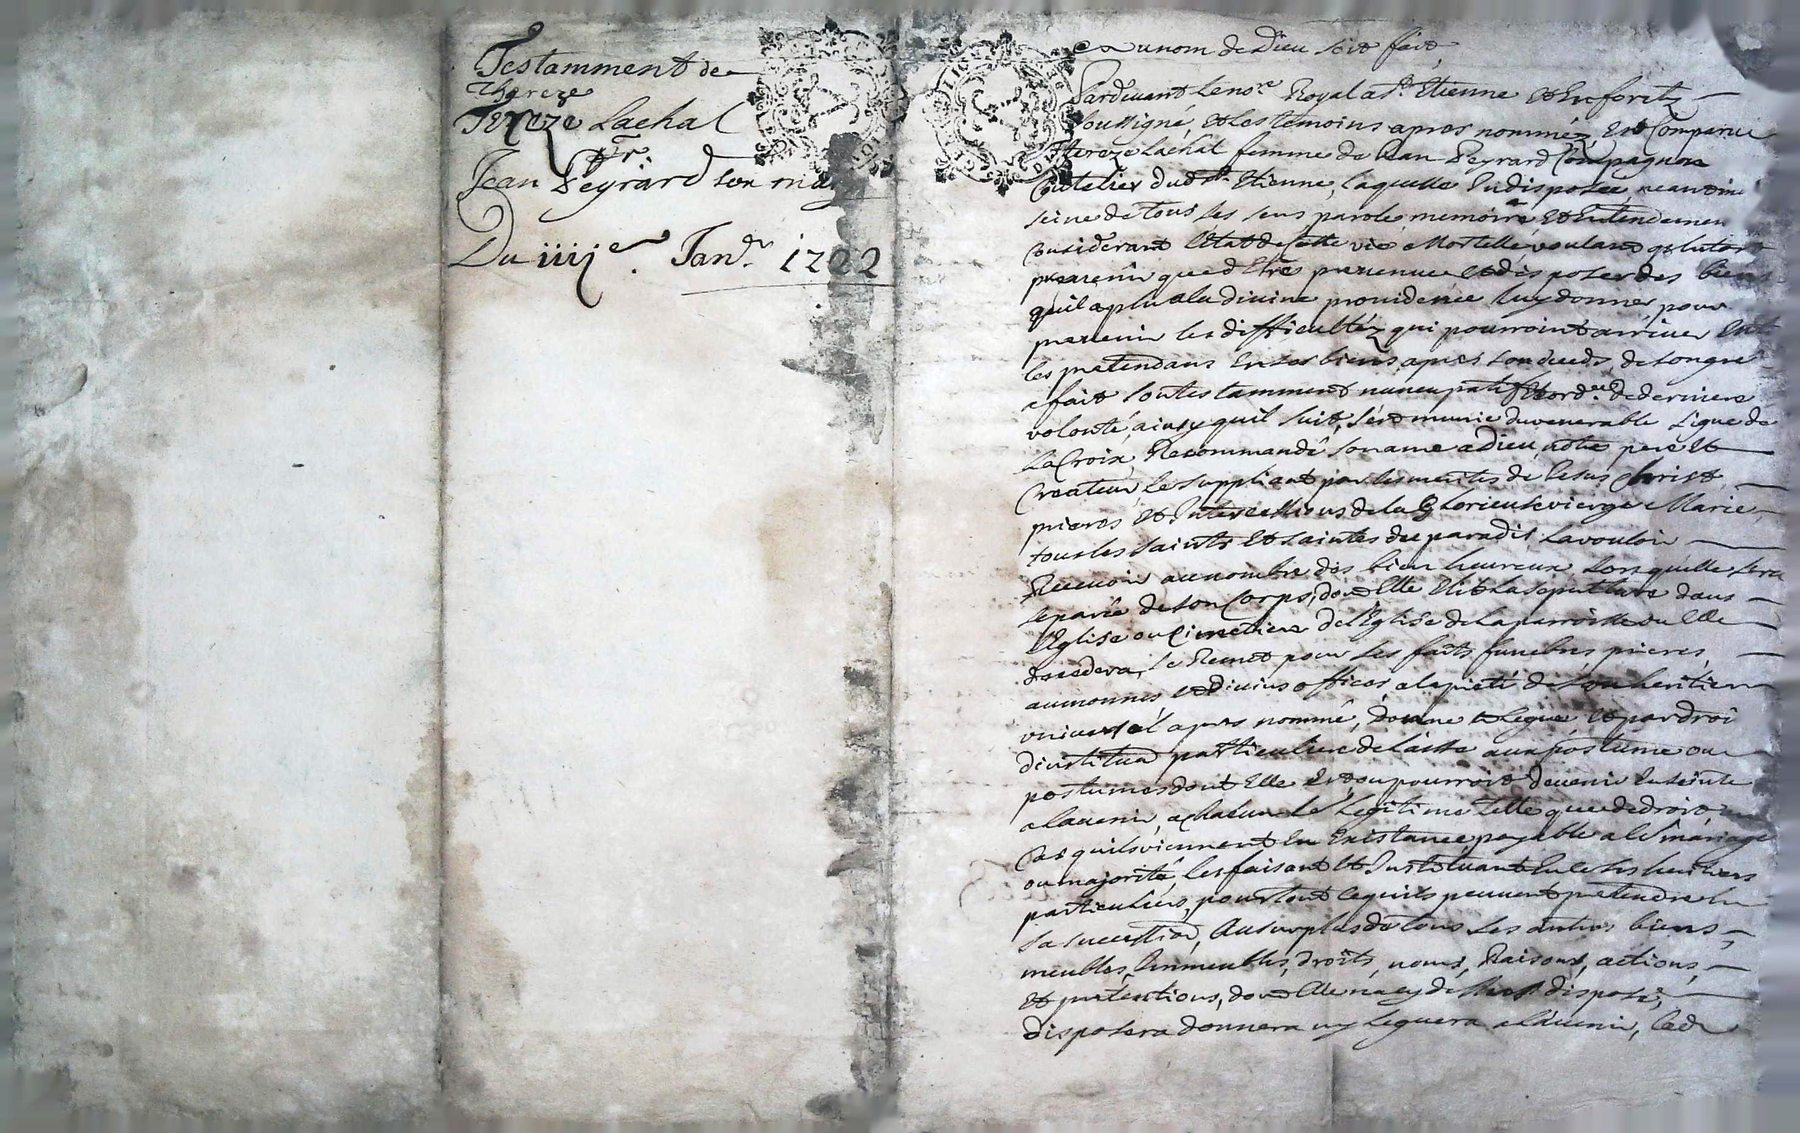 Testamment de
Thereze
Tereze Lachal
pr
Jean Peyrard son mary
Du iiiie. Janr. 1722
Au nom de Dieu soit fait,
Pardevant le nore. Royal a St. Etienne et en foretz
soussigné, et les temoins apres nomméz, Est Comparue
Thereze Lachal femme de Jean Peyrard Compagnon
Coutelier dud. St. Etienne, laquelle Indisposée, neantmoins
seine de tous ses sens parole memoire et Entendement
Considerant l'état de cette vie Mortelle, voulant plutot
prevenir que d'Etre prevenue et disposer des biens
quil a plu a la divine providence luy donner, pour
prevenir les difficultéz qui pourroint arriver Entre
les pretendans En ses biens apres son deceds, de son gré
a fait son testamment nuncupatif et ordce. de derniere
volonté, ainsy quil suit, s'est munie du venerable Signe de
La Croix, Recommandé son ame a Dieu notre pere Et
Createur, le suppliant par les merites de Jesus Christ,
prieres et Intercessions de la Glorieuse vierge Marie,
tous les saints et saintes du paradis, la vouloir
Recevoir au nombre des bien heureux Lors quelle sera
separée de son Corps, dont Elle Elit la sepulture dans
l'Eglise ou Cimetiere de l'Eglise de la parroisse ou Elle
decedera, se Remet pour ses faits funebres, prieres,
aumonnes, et divins offices, a la pieté de son heritier
universel apres nommé, Donne et Legue et par droit
d'institu'on particuliere delaisse aux postume ou
postumes dont Elle Est ou pourroit devenir Enceinte
a l'avenir, a chacun la Legitime telle que de droit, en
Cas quils viennent En Existance, payable a leur mariage
ou majorité, les faisant et Instituant En ce ses heritiers
particuliers, pour tout ce quils peuvent pretendre En
sa succession, Au surplus de tous ses autres biens,
meubles, Immeubles, droits, noms, Raisons, actions,
et pretentions, dont Elle n'a cy dessus disposé,
disposera donnera ny Leguera a l'avenir, Lad.